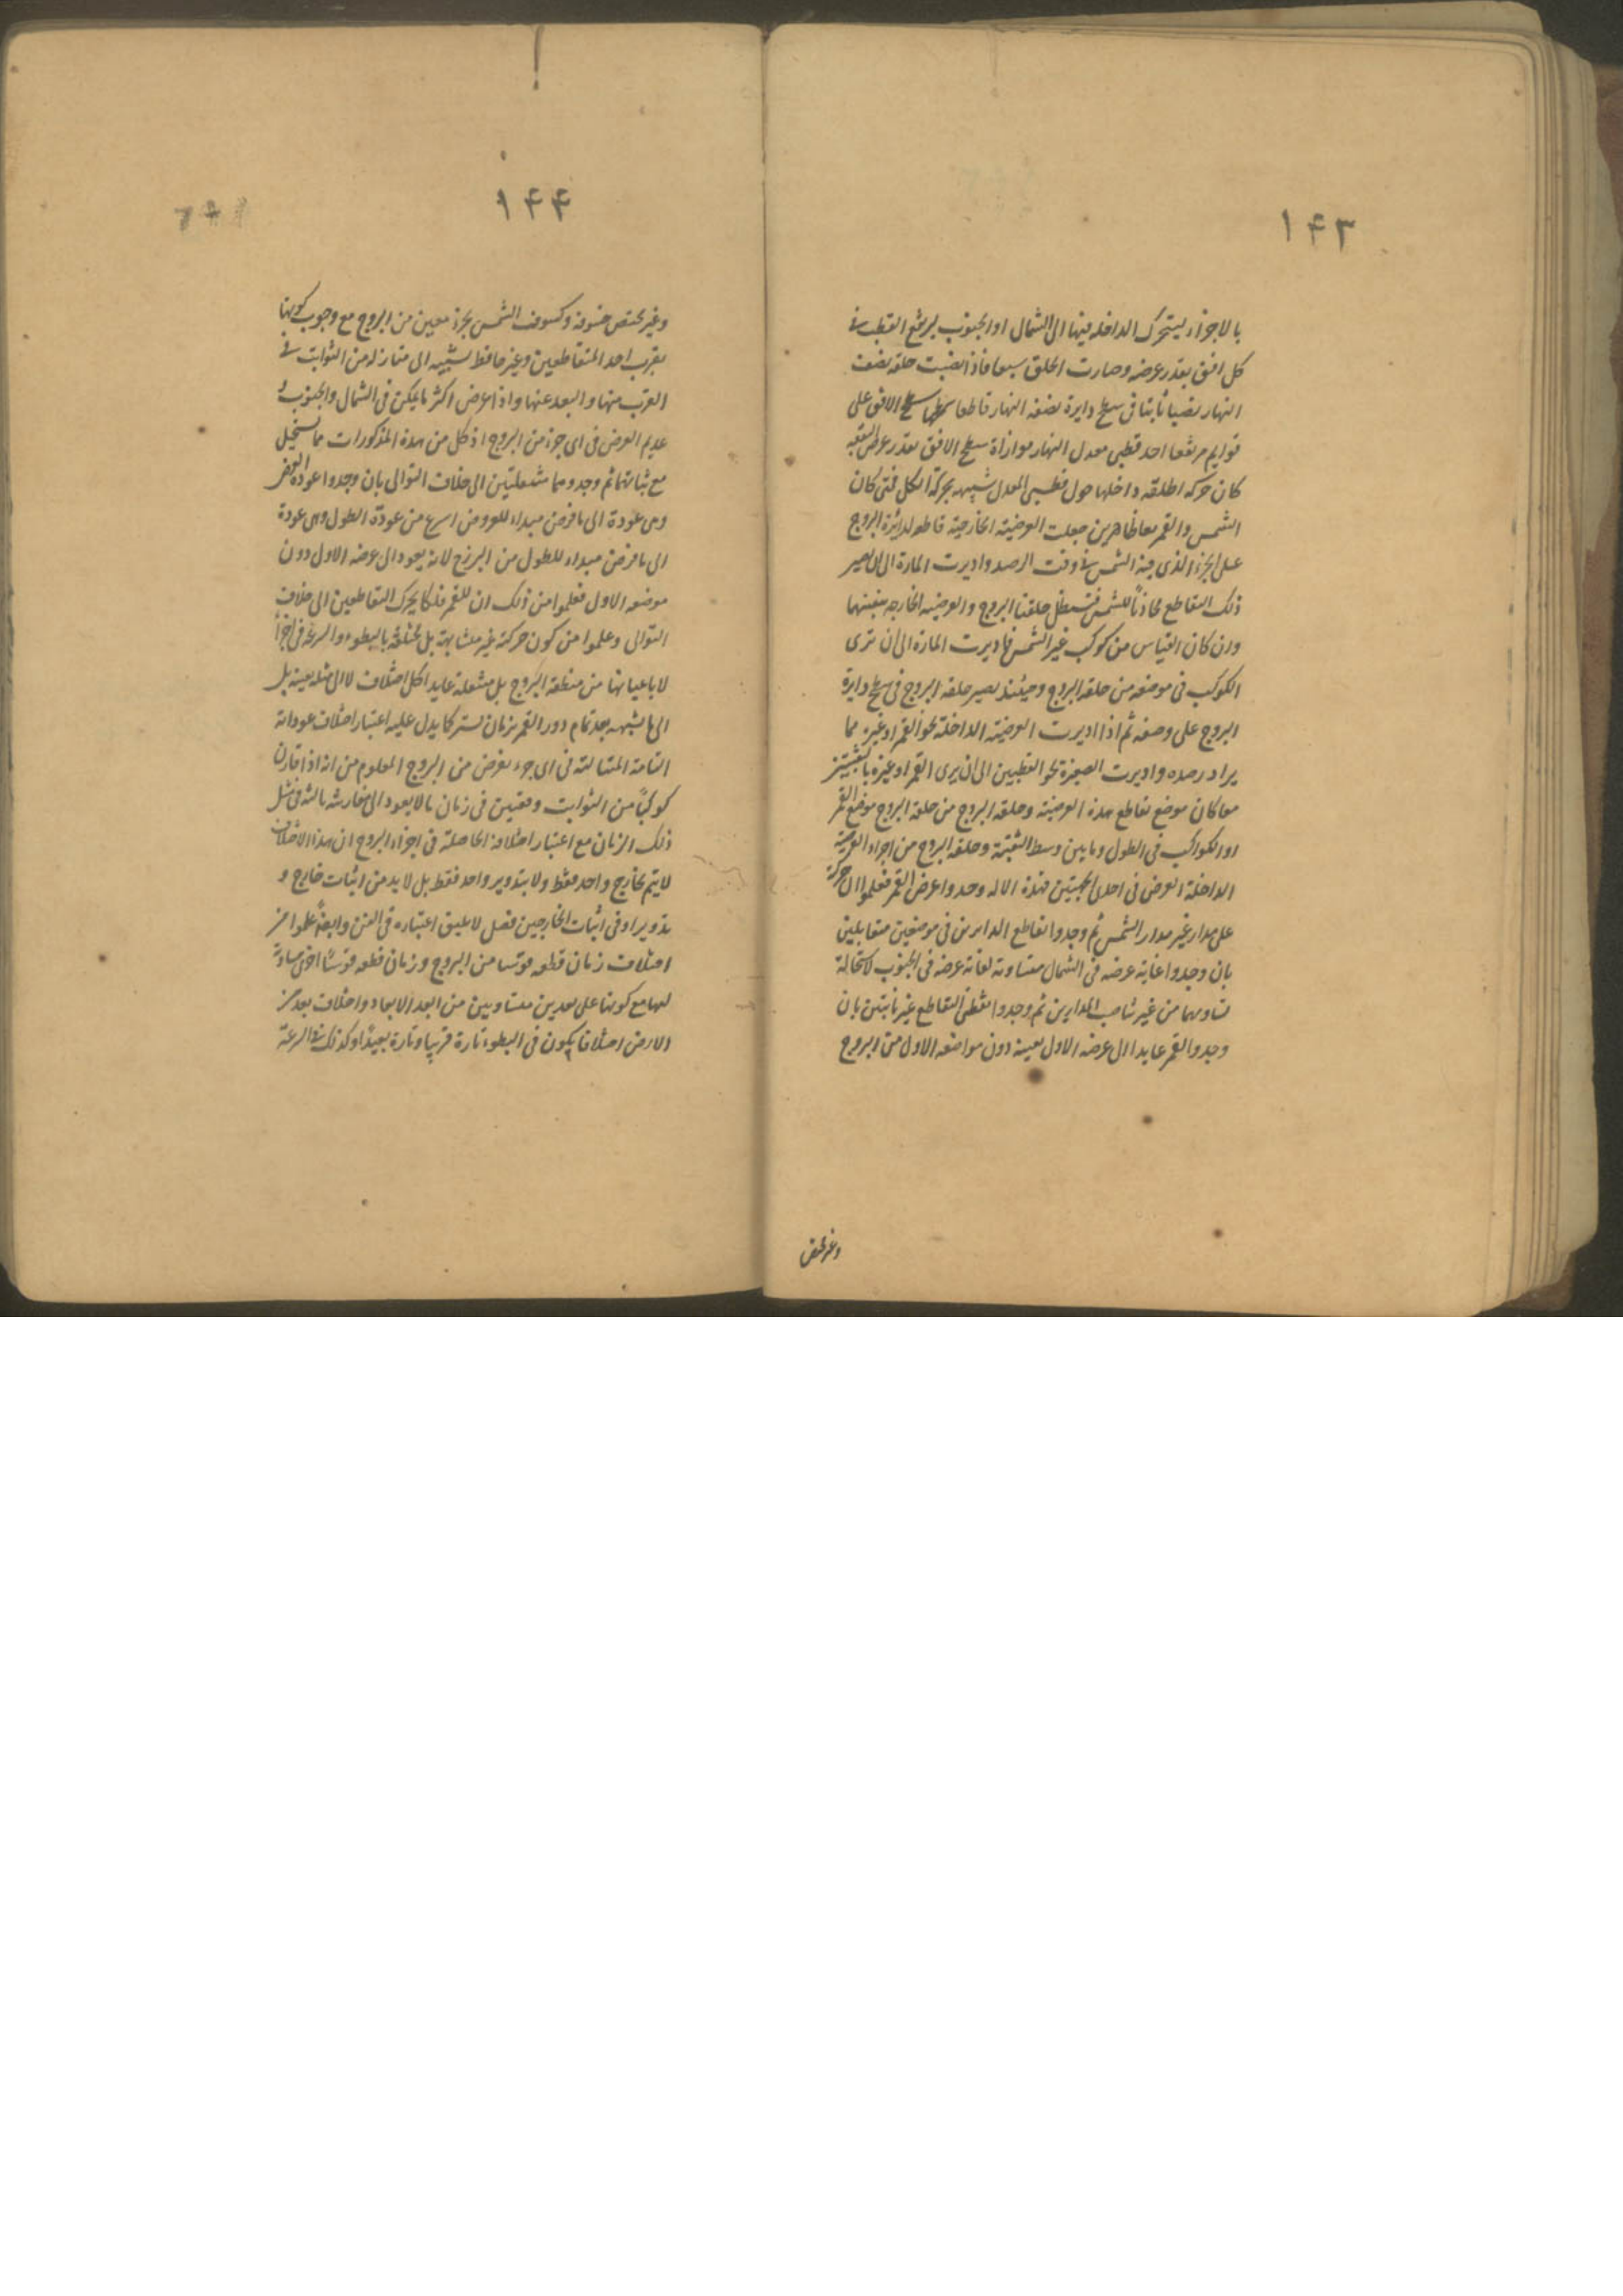 ١٤٣
بالاجزاء ليتحرك الداخلة فيها الى الشمال او الجنوب ليرتفع القطب فى
كل افق بقدر عرضه وصارت الحلق سبعا فاذا نصبت حلقه نصف
النهار نصبا ثابتا فى سطح دايرة نصف النهار قاطعا سطحها سطح الافق على
قوايم مرتفعا احد قطبى معدل النهار موازاة سطح الافق بقدر عرض البقعه
كان حركه داخلها حول قطبى المعدل شبيهه بحركة الكل فمتى كان
الشمس والقمر معا ظاهرين جعلت العرضية الخارجية قاطعه لدائرة البروج
على الجزء الذى فيه الشمس فى وقت الرصد واديرت المارة الى ان يصير
ذلك التقاطع محاذيا للشمس فتظل حلقتا البروج والعرضيه الخارجه بنفسها
وان كان القياس من كوكب غير الشمس فاديرت المارة الى ان ترى
الكوكب فى موضعه من حلقه البروج وحينئذ يصير حلقه البروج فى سطح دايرة
البروج على وضعه ثم اذا اديرت العرضية الداخلة نحو القمر او غيره مما
يراد رصده واديرت الصغيرة نحو القطبين الى ان يرى القمر او غيره بالثقبتين
معا كان موضع تقاطع هذه العرضية وحلقه البروج من حلقه البروج موضع القمر
او الكواكب فى الطول وما بين وسط الثقبة وحلقه البروج من اجزاء العرضية
الداخلة العرض فى احدى الجهتين فبهذه الاله وجدوا عرض القمر فعلموا ان حركة
على مدار غير مدار الشمس ثم وجدوا تقاطع المدارين فى موضعين متقابلين
بان وجدوا غاية عرضه فى الشمال متساوية لغاية عرضه فى الجنوب لاستحالة
تساويهما من غير تناصف المدارين ثم وجدوا نقطتى التقاطع غير ثابتتين بان
وجدوا القمر عايدا الى عرضه الاول بعينه دون مواضعه الاول من البروج
وغير مختص
١٤٤
وغير مختص خسوفه وكسوف الشمس بجزء معين من البروج مع وجوب كونها
بقرب احد المتقاطعين وغير حافظ نسبته الى منازله من الثوابت فى
القرب منها والبعد عنها واذا عرض اكثر ما يمكن فى الشمال والجنوب و
عديم العرض فى اى جزء من البروج اذ كل من هذه المذكورات مما يستحيل
مع ثباتهما ثم وجدوهما منتقلتين الى خلاف التوالى بان وجدوا عودة العرض
وهى عودة الى ما فرض مبداء للعرض اسرع من عودة الطول وهى عودة
الى ما فرض مبداء للطول من البروج لانه يعود الى عرضه الاول دون
موضعه الاول فعلموا من ذلك ان للقمر فلكا يحرك التقاطعين الى خلاف
التوالى وعلموا من كون حركته غير متشابهة بل مختلفة بالبطوء والسرعة فى اجزاء
لا باعيانها من منطقة البروج بل منتقلة عايدا كل اختلاف لا الى مثله بعينه بل
الى ما يشبهه بعد تمام دور القمر بزمان يسير كما يدل عليه اعتبار اختلاف عوداته
التامة المتتالية فى اى جزء يفرض من البروج المعلوم من انه اذا قارن
كوكبا من الثوابت دفعتين فى زمان ما لا يعود الى مقارنته ثالثه فى مثل
ذلك الزمان مع اعتبار اختلافه الحاصلة فى اجزاء البروج ان هذا الاختلاف
لا يتم بخارج واحد فقط ولا بتدوير واحد فقط بل لابد من اثبات خارج و
تدوير او فى اثبات الخارجين فضل لا يليق اعتباره فى الفن وايضا علموا من
اختلاف زمان قطعه قوسا من البروج وزمان قطعه قوسا اخرى مساوية
لها مع كونها على بعدين متساويين من ابعد الابعاد واختلاف بعده من
الارض اختلافا يكون فى البطوء تارة قريبا وتارة بعيدا وكذلك فى السرعة